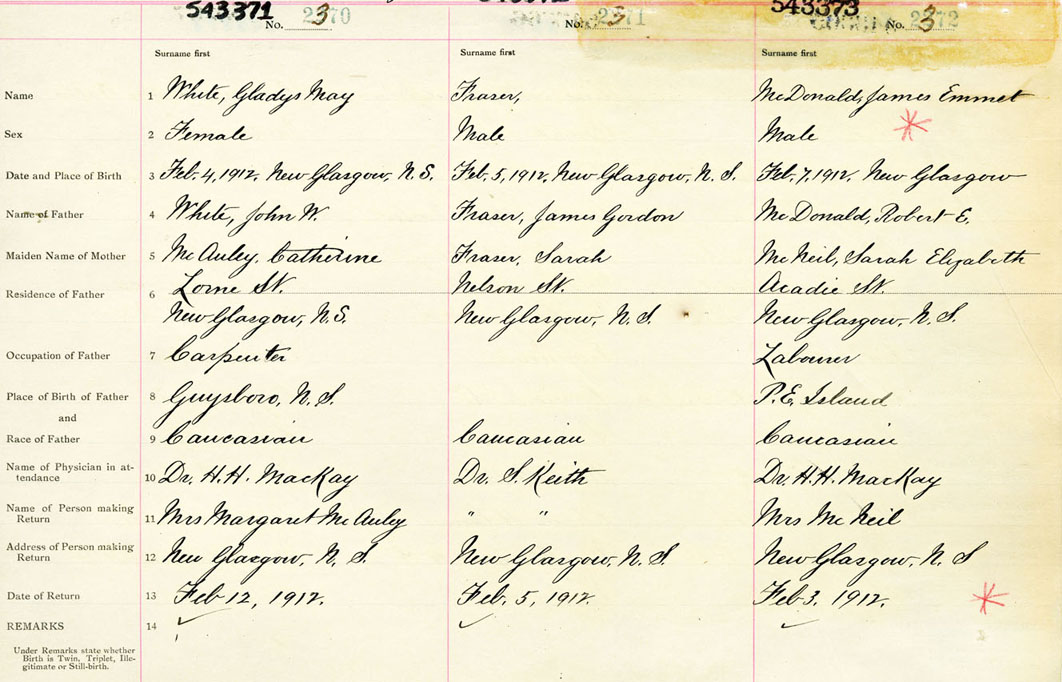 543371 No. 2370 No. 2371 543373 No. 2372
Surname first Surname first Surname first
Name 1 White, Gladys May Fraser, McDonald, James Emmet
Sex 2 Female Male Male
Date and Place of Birth 3 Feb. 4, 1912. New Glasgow, N.S. Feb. 5, 1912, New Glasgow, N.S. Feb. 7, 1912. New Glasgow
Name of Father 4 White, John W. Fraser, James Gordon McDonald, Robert E.
Maiden Name of Mother 5 McAuley, Catherine Fraser, Sarah McNeil, Sarah Elizabeth
Residence of Father 6 Lorne St. Nelson St. Acadie St.
New Glasgow, N.S. New Glasgow, N.S. New Glasgow, N.S.
Occupation of Father 7 Carpenter Labourer
Place of Birth of Father 8 Guysboro, N.S. P.E. Island
and
Race of Father 9 Caucasian Caucasian Caucasian
Name of Physician in at-
tendance 10 Dr. H.H. MacKay Dr. S. Keith Dr. H.H. MacKay
Name of Person making
Return 11 Mrs Margaret McAuley " " Mrs McNeil
Address of Person making
Return 12 New Glasgow, N.S. New Glasgow, N.S. New Glasgow, N.S
Date of Return 13 Feb 12, 1912. Feb. 5, 1912. Feb 3. 1912.
REMARKS 14
Under Remarks state whether
Birth is Twin, Triplet, Ille-
gitimate or Still-birth.